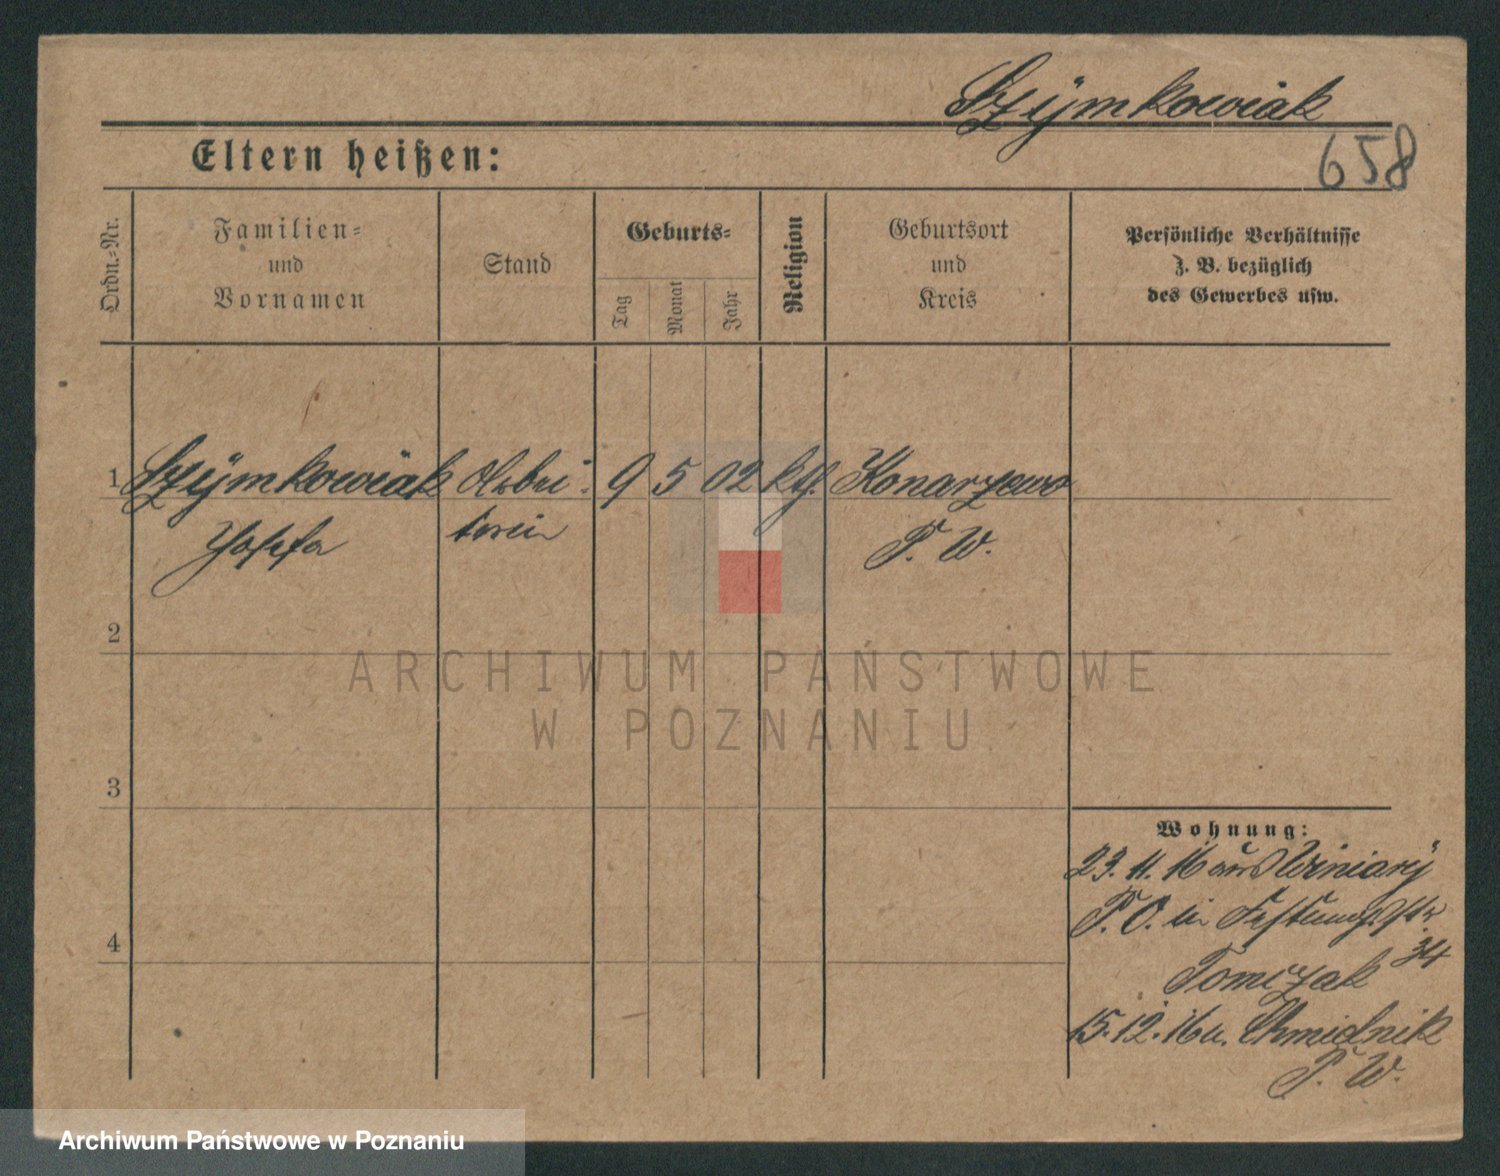 Szÿmkowiak
658
Eltern heißen:
Ordn.-Nr.
Familien-
und
Vornamen
Stand
Geburts-
Tag
Monat
Jahr
Religion
Geburtsort
und
Kreis
Persönliche Verhältnisse
z. B. bezüglich
des Gewerbes usw.
1 Szÿmkowiak Arbei- 9 5 02 kth. Konarzewo
Josefa terin P. W.
2
3
4
Wohnung:
23. 11. 16 aus Winiarÿ
P. O. in Festungsstr
34
Tomczak
15. 12. 16 n. Chmielnik
P. W.
ARCHIWUM PAŃSTWOWE
W POZNANIU
Archiwum Państwowe w Poznaniu